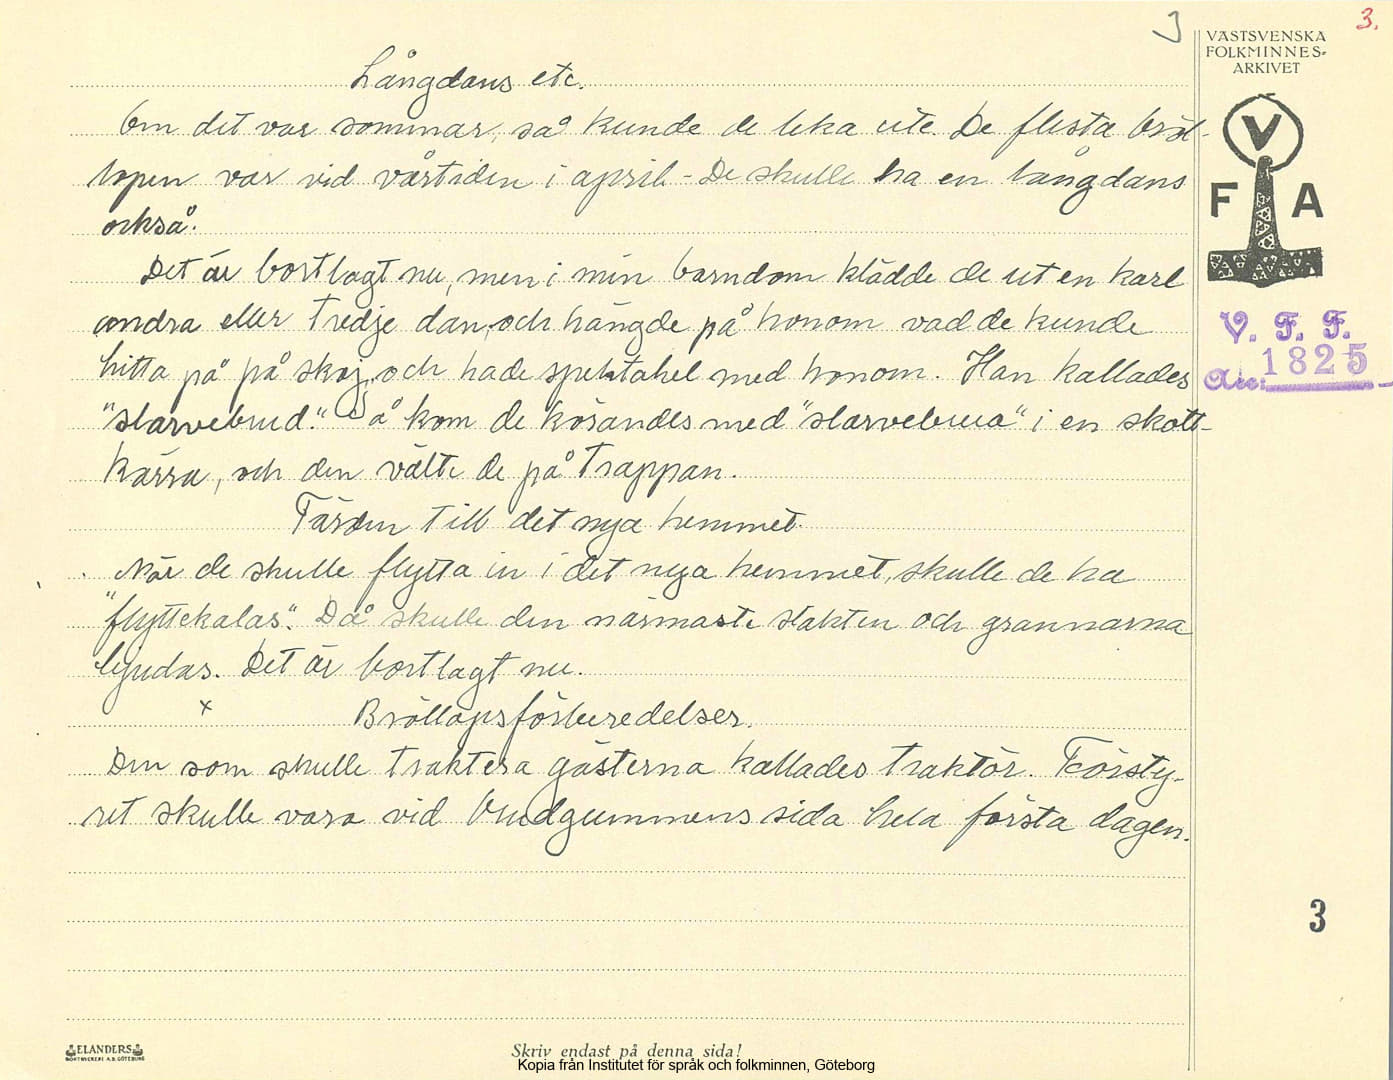 3
3.
VÄSTSVENSKA
FOLKMINNES-
ARKIVET
V
F A
V. F. F.
Acc: 1825
Långdans etc.
Om det var sommar, så kunde de leka ute. De flesta bröl-
lopen var vid vårtiden i april - De skulle ha en långdans
också.
Det är bortlagt nu, men i min barndom klädde de ut en karl
andra eller tredje dan, och hängde på honom vad de kunde
hitta på på skoj, och hade spektakel med honom. Han kallades
"slarvebrud". Så kom de körandes med "slarvebrua" i en skott-
kärra, och den välte de på trappan.
Färden till det nya hemmet.
När de skulle flytta in i det nya hemmet, skulle de ha
"flyttekalas". Då skulle den närmaste släkten och grannarna
bjudas. Det är bortlagt nu.
x Bröllopsförberedelser.
Den som skulle traktera gästerna kallades traktör. Försty-
ret skulle vara vid brudgummens sida hela första dagen.
3
ELANDERS
BOKTRYCKERI A.B. GÖTEBORG
Skriv endast på denna sida!
Kopia från Institutet för språk och folkminnen, Göteborg